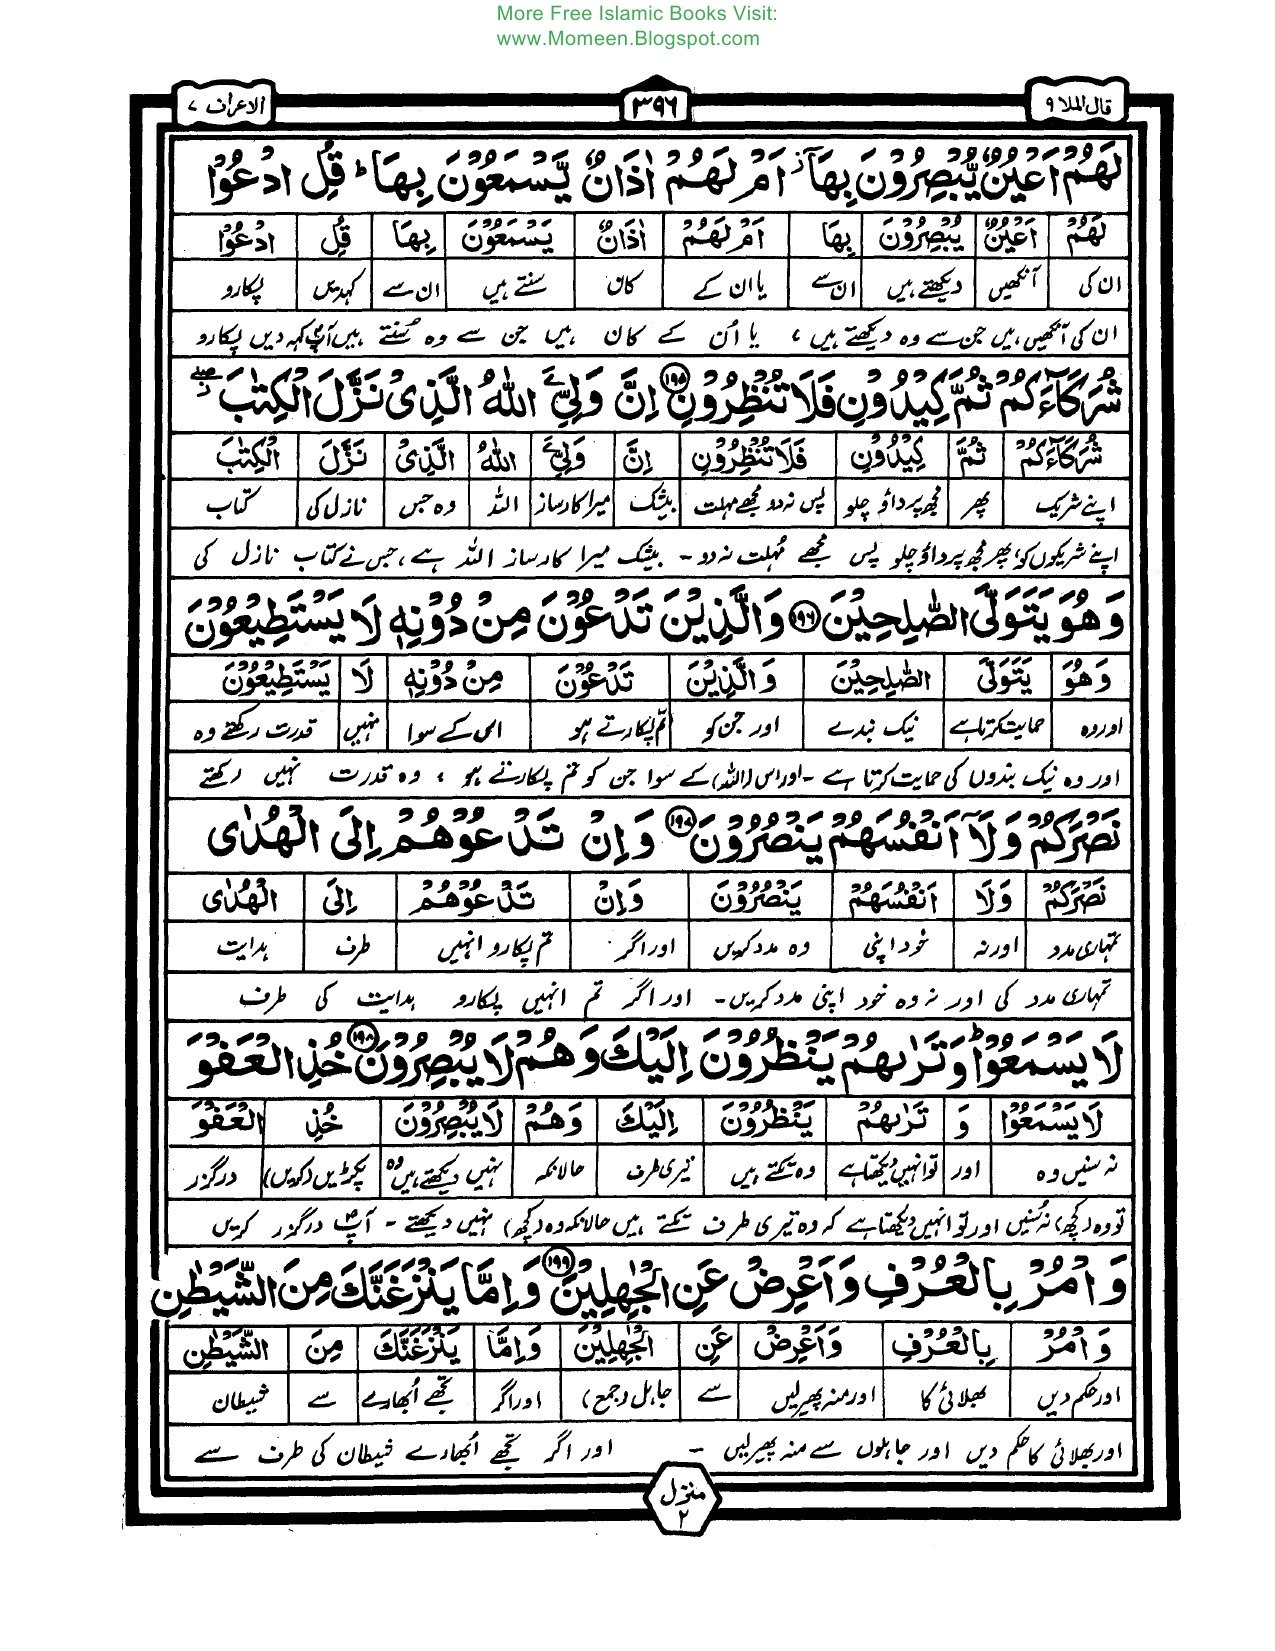 More Free Islamic Books Visit:
www.Momeen.Blogspot.com
قال الملا ۹
۳۹۶
الاعراف ۷
لَهُمْ اَعْيُنٌ يُّبْصِرُوْنَ بِهَآ ز اَمْ لَهُمْ اٰذَانٌ يَّسْمَعُوْنَ بِهَا ط قُلِ ادْعُوْا
لَهُمْ اَعْيُنٌ يُبْصِرُوْنَ بِهَا اَمْ لَهُمْ اٰذَانٌ يَسْمَعُوْنَ بِهَا قُلِ ادْعُوْا
ان کی آنکھیں دیکھتے ہیں ان سے یا ان کے کان سنتے ہیں ان سے کہدیں پکارو
ان کی آنکھیں ہیں جن سے وہ دیکھتے ہیں ، یا اُن کے کان ہیں جن سے وہ سُنتے ہیں آپؐ کہہ دیں پکارو
شُرَكَآءَكُمْ ثُمَّ كِيْدُوْنِ فَلَا تُنْظِرُوْنِ ۱۹۵ اِنَّ وَلِيِّ اللّٰهُ الَّذِىْ نَزَّلَ الْكِتٰبَ صلے
شُرَكَآءَكُمْ ثُمَّ كِيْدُوْنِ فَلَا تُنْظِرُوْنِ اِنَّ وَلِيِّ اللّٰهُ الَّذِىْ نَزَّلَ الْكِتٰبَ
اپنے شریک پھر مجھ پر داؤ چلو پس نہ دو مجھے مہلت بیشک میرا کارساز اللہ وہ جس نازل کی کتاب
اپنے شریکوں کو، پھر مجھ پر داؤ چلو پس مجھے مُہلت نہ دو - بیشک میرا کارساز اللہ ہے، جس نے کتاب نازل کی
وَهُوَ يَتَوَلَّى الصّٰلِحِيْنَ ۱۹۶ وَالَّذِيْنَ تَدْعُوْنَ مِنْ دُوْنِهٖ لَا يَسْتَطِيْعُوْنَ
وَهُوَ يَتَوَلَّى الصّٰلِحِيْنَ وَالَّذِيْنَ تَدْعُوْنَ مِنْ دُوْنِهٖ لَا يَسْتَطِيْعُوْنَ
اور وہ حمایت کرتا ہے نیک بندے اور جن کو تم پکارتے ہو اس کے سوا نہیں قدرت رکھتے وہ
اور وہ نیک بندوں کی حمایت کرتا ہے - اور اس (اللہ) کے سوا جن کو تم پکارتے ہو ، وہ قدرت نہیں رکھتے
نَصْرَكُمْ وَلَآ اَنْفُسَهُمْ يَنْصُرُوْنَ ۱۹۷ وَاِنْ تَدْعُوْهُمْ اِلَى الْهُدٰى
نَصْرَكُمْ وَلَا اَنْفُسَهُمْ يَنْصُرُوْنَ وَاِنْ تَدْعُوْهُمْ اِلَى الْهُدٰى
تمہاری مدد اور نہ خود اپنی وہ مدد کریں اور اگر تم پکارو انہیں طرف ہدایت
تمہاری مدد کی اور نہ وہ خود اپنی مدد کریں - اور اگر تم انہیں پکارو ہدایت کی طرف
لَا يَسْمَعُوْا ط وَتَرٰىهُمْ يَنْظُرُوْنَ اِلَيْكَ وَهُمْ لَا يُبْصِرُوْنَ ۱۹۸ خُذِ الْعَفْوَ
لَا يَسْمَعُوْا وَ تَرٰىهُمْ يَنْظُرُوْنَ اِلَيْكَ وَهُمْ لَا يُبْصِرُوْنَ خُذِ الْعَفْوَ
نہ سنیں وہ اور تو انہیں دیکھتا ہے وہ تکتے ہیں تیری طرف حالانکہ نہیں دیکھتے ہیں وہ پکڑیں (کریں) درگزر
تو وہ (کچھ) نہ سُنیں اور تو انہیں دیکھتا ہے کہ وہ تیری طرف تکتے ہیں حالانکہ وہ (کچھ) نہیں دیکھتے - آپؐ درگزر کریں
وَاْمُرْ بِالْعُرْفِ وَاَعْرِضْ عَنِ الْجٰهِلِيْنَ ۱۹۹ وَاِمَّا يَنْزَغَنَّكَ مِنَ الشَّيْطٰنِ
وَاْمُرْ بِالْعُرْفِ وَاَعْرِضْ عَنِ الْجٰهِلِيْنَ وَاِمَّا يَنْزَغَنَّكَ مِنَ الشَّيْطٰنِ
اور حکم دیں بھلائی کا اور منہ پھیر لیں سے جاہل (جمع) اور اگر تجھے اُبھارے سے شیطان
اور بھلائی کا حکم دیں اور جاہلوں سے منہ پھیر لیں - اور اگر تجھے اُبھارے شیطان کی طرف سے
منزل ۲